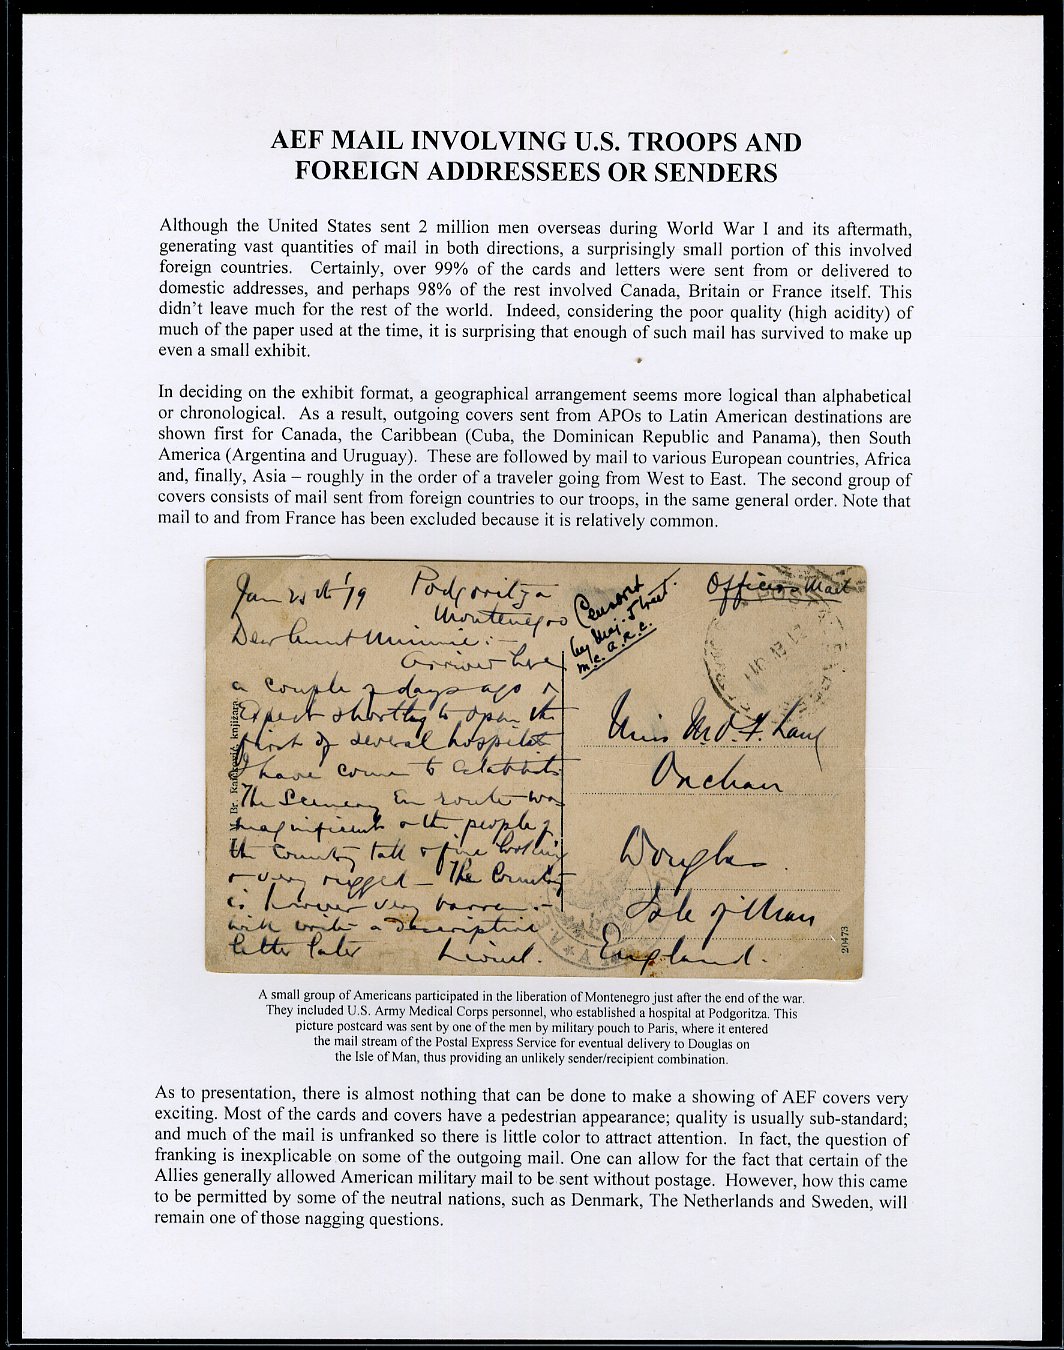 AEF MAIL INVOLVING U.S. TROOPS AND
FOREIGN ADDRESSEES OR SENDERS
Although the United States sent 2 million men overseas during World War I and its aftermath,
generating vast quantities of mail in both directions, a surprisingly small portion of this involved
foreign countries. Certainly, over 99% of the cards and letters were sent from or delivered to
domestic addresses, and perhaps 98% of the rest involved Canada, Britain or France itself. This
didn't leave much for the rest of the world. Indeed, considering the poor quality (high acidity) of
much of the paper used at the time, it is surprising that enough of such mail has survived to make up
even a small exhibit.
In deciding on the exhibit format, a geographical arrangement seems more logical than alphabetical
or chronological. As a result, outgoing covers sent from APOs to Latin American destinations are
shown first for Canada, the Caribbean (Cuba, the Dominican Republic and Panama), then South
America (Argentina and Uruguay). These are followed by mail to various European countries, Africa
and, finally, Asia – roughly in the order of a traveler going from West to East. The second group of
covers consists of mail sent from foreign countries to our troops, in the same general order. Note that
mail to and from France has been excluded because it is relatively common.
Podgoritza
Montenegro
Dear Aunt Minnie:-
Arrived here
a couple of days ago &
Expect shortly to open the
first of several hospitals
I have come to establish
The Scenery En route was
magnificent & the people of
the country tall & fine looking
& very rugged - The Country
is however very barren.-
Will write a descriptive
letter later Lionel.
Censored
by Maj. Street
M.C. A.R.C.
Officers Mail
POSTAL
Miss M.O.F. Lang
Onchan
Douglas
Isle of Man
England.
20473
A small group of Americans participated in the liberation of Montenegro just after the end of the war.
They included U.S. Army Medical Corps personnel, who established a hospital at Podgoritza. This
picture postcard was sent by one of the men by military pouch to Paris, where it entered
the mail stream of the Postal Express Service for eventual delivery to Douglas on
the Isle of Man, thus providing an unlikely sender/recipient combination.
As to presentation, there is almost nothing that can be done to make a showing of AEF covers very
exciting. Most of the cards and covers have a pedestrian appearance; quality is usually sub-standard;
and much of the mail is unfranked so there is little color to attract attention. In fact, the question of
franking is inexplicable on some of the outgoing mail. One can allow for the fact that certain of the
Allies generally allowed American military mail to be sent without postage. However, how this came
to be permitted by some of the neutral nations, such as Denmark, The Netherlands and Sweden, will
remain one of those nagging questions.